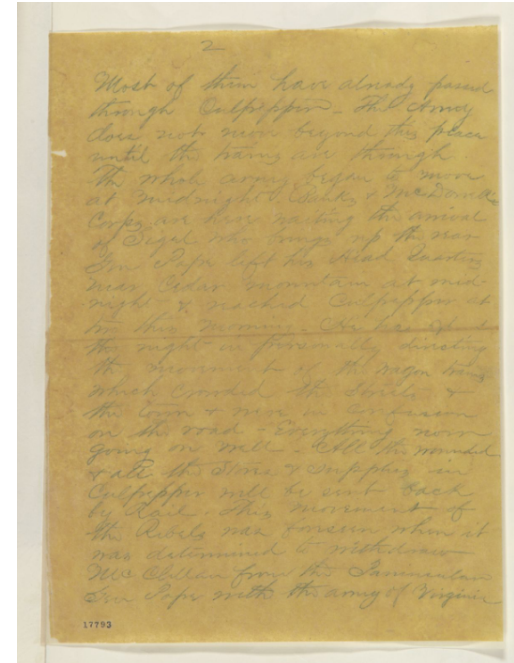 2
Most of them have already passed
through Culpepper - The Army
does not move beyond this place
until the trains are through
The whole army began to move
at midnight. Banks & McDowells
Corps are here waiting the arrival
of Sigel who brings up the rear
Gen Pope left his Head Quarters
near Cedar mountain at mid
night & reached Culpepper at
this morning - He has
the night in personally directing
the movements of the wagon trains
which crowded the streets &
the town & were in confusion
on the road - Everything now
going on well - All the wounded
& all the stores & supplies in
Culpepper will be sent back
by Rail. This movement of
the Rebels was foreseen when it
was determined to withdraw
McClellan from the Peninsula
Gen Pope with the army of Virginia
17793